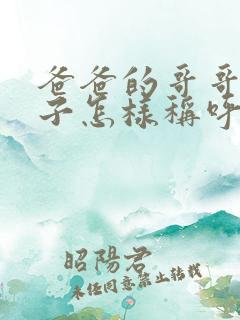 爸爸的哥哥
子怎樣稱呼
昭陽君
未任同意禁止转载